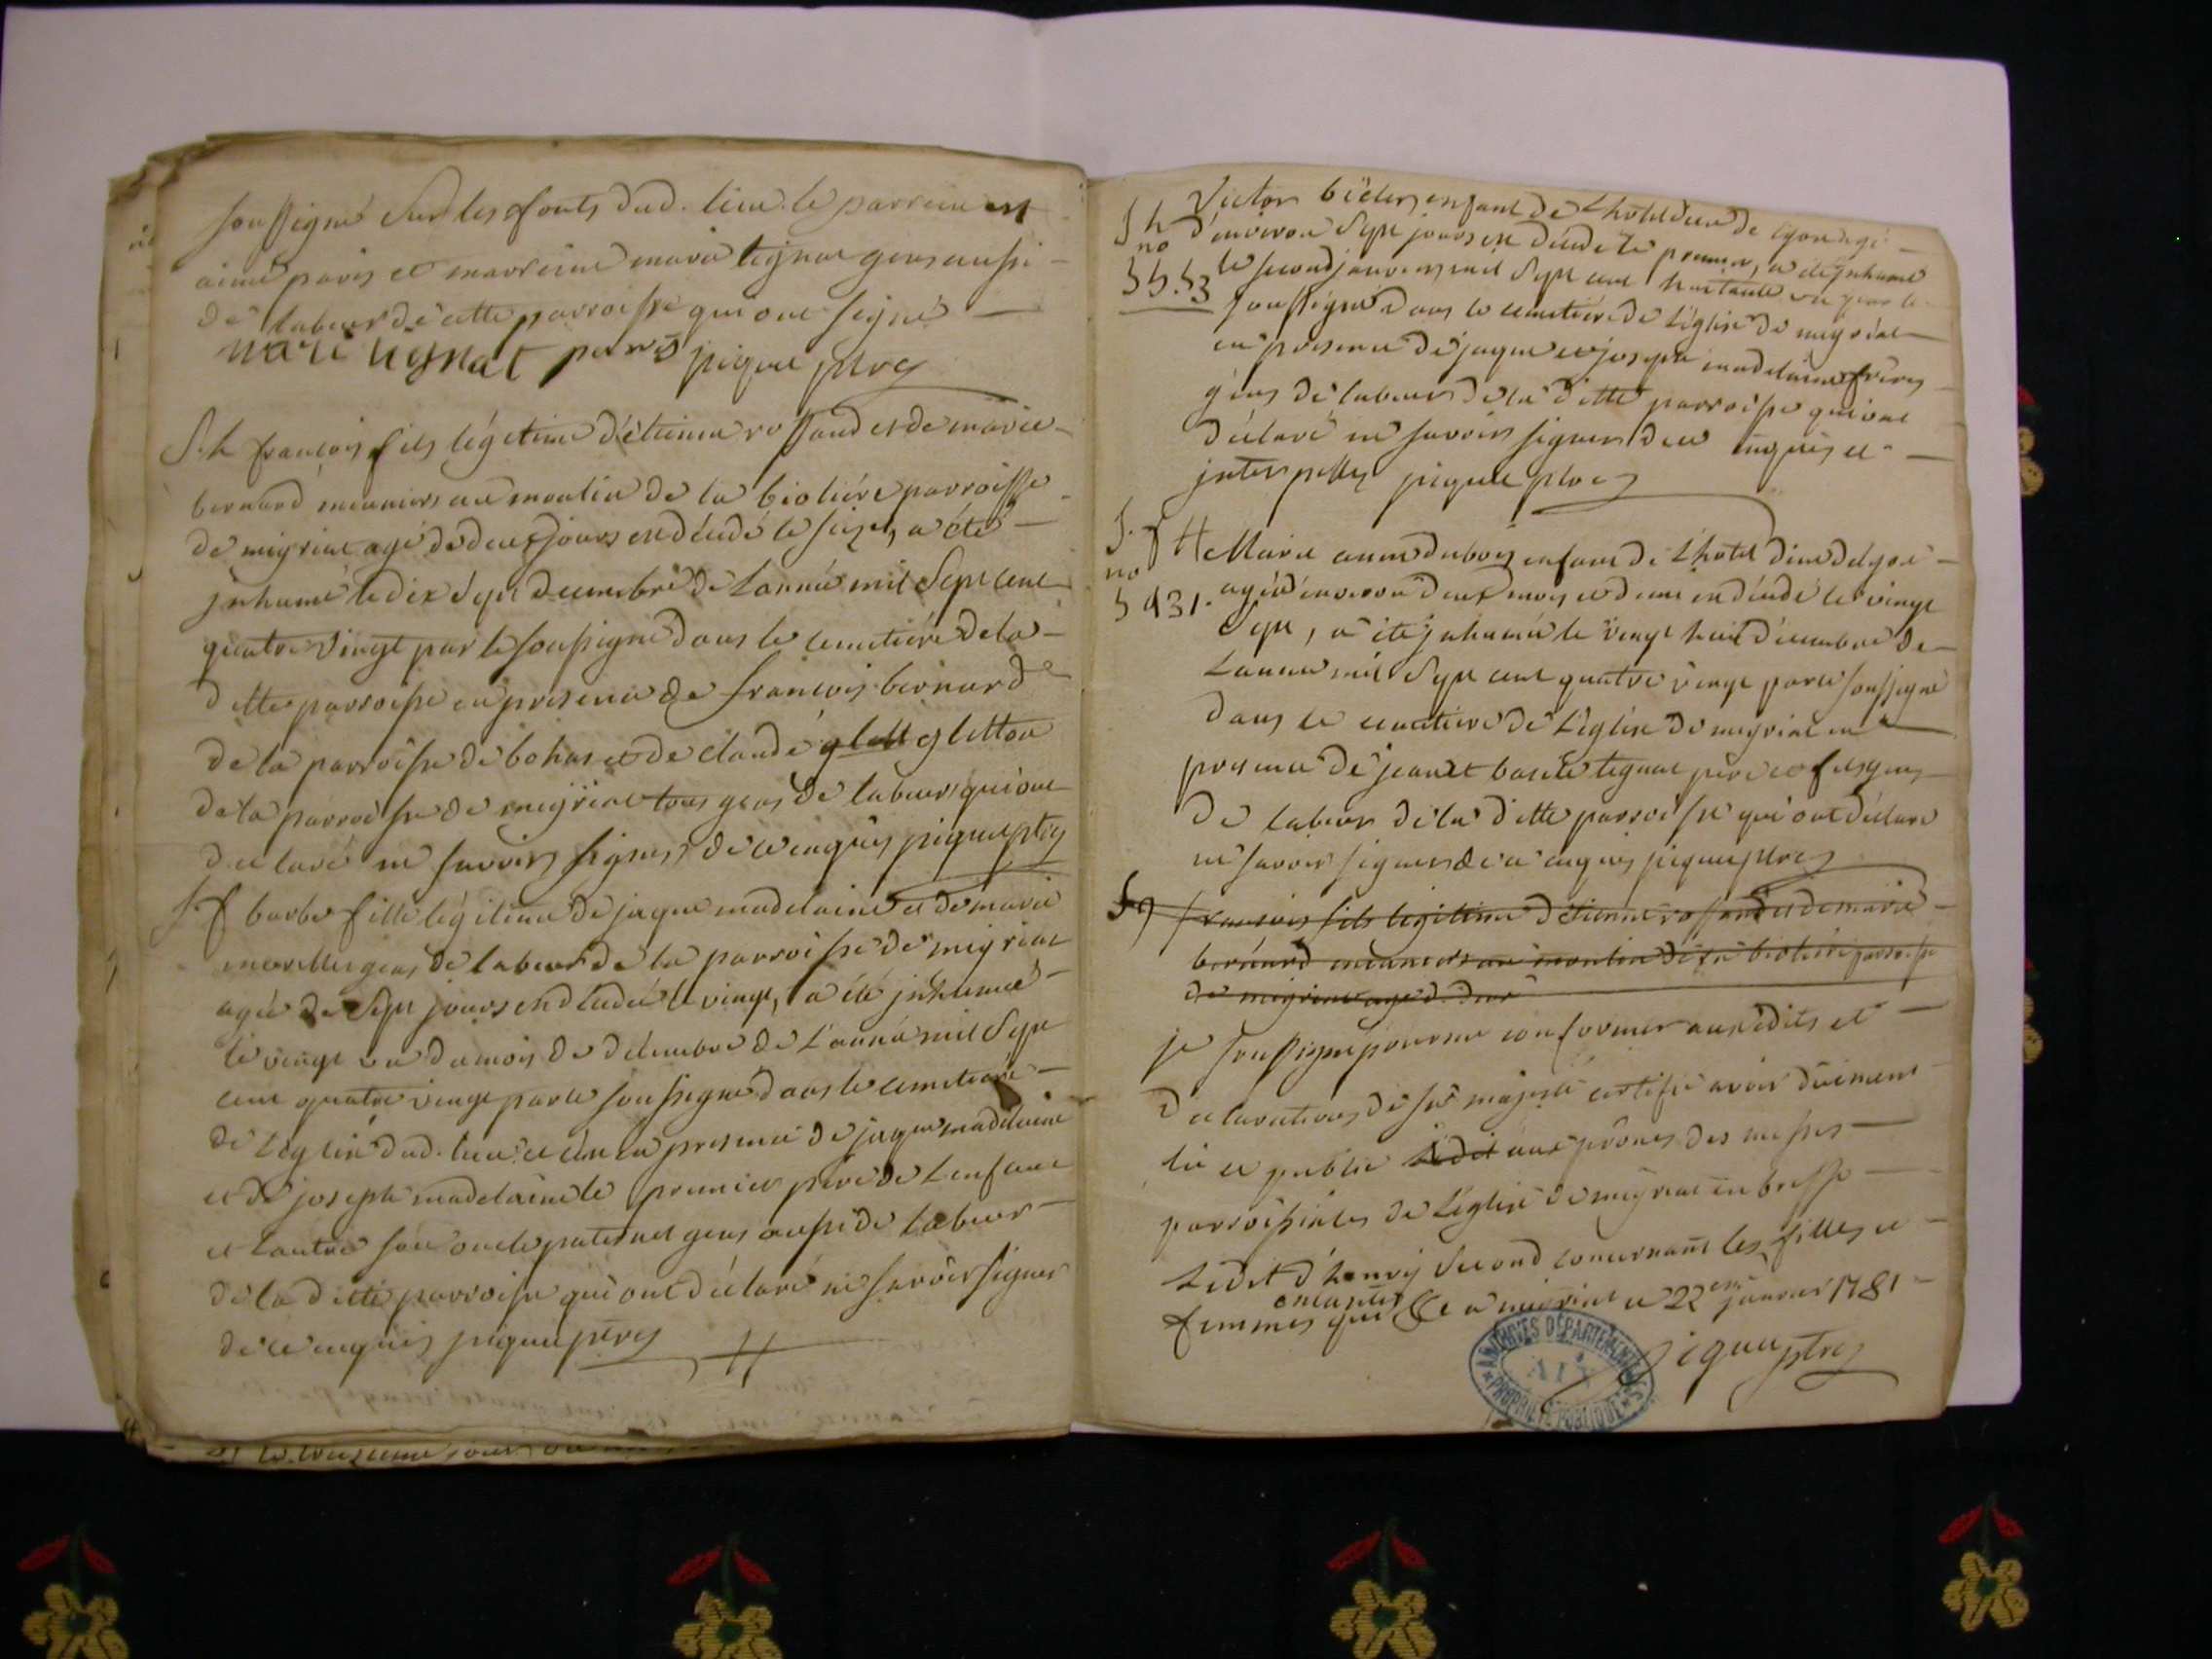 soussigné sur les fonts dud. lieu le parrein est
aimé paris et marreine marie tignat gens aussi
de labeur de cette parroisse qui ont signé
marie tignat paris pique ptre
S.h françois fils légitime d'étienne rossand et de marie
bernard meuniers au moulin de la bioliére parroisse
de migriat agé de deux jours en décédé le seize, a été
jnhumé le dix sept decembre de l'année mil sept cent
quatre vingt par le soussigné dans le cemetiére de la
ditte parroisse en presence de françois bernard
de la parroisse de bohas et de claude glett gletton
de la parroisse de meyriat tous gens de labeur qui ont
declaré ne savoir signer de ce enquis pique ptre
S.f barbe fille légitime de jaque madelaine et de marie
gens de labeur de la parroisse de migriat
agée de sept jours en décédée le vingt, a été jnhumée
le vingt un du mois de décembre de l'année mil sept
cent quatre vingt par le soussigné dans le cemetiére
de l'église dud. lieu et en la presence de jaque madelaine
et de joseph madelaine le premier pére de l'enfant
et l'autre son oncle paternel gens aussi de labeur
de la ditte parroisse qui ont déclaré ne savoir signer
de ce enquis pique ptre
S h Victor enfant de l'hotel dieu de lyon agé
no d'environ sept jours en décédé le premier, a été jnhumé
le second janvier mil sept cent huitante un par le
soussigné dans le cemetiére de l'église de meyriat
en presence de jaque et joseph madelaine fréres
gens de labeur de la ditte parroisse qui ont
déclaré ne savoir signer de ce enquis et
jnterpellés pique ptre
S. f Marie anne dubois enfant de l'hotel dieu de lyon
no agée d'environ deux mois et demi en décédé le vingt
5931. sept, a été jnhumée le vingt huit décembre de
l'année mil sept cent quatre vingt par le soussigné
dans le cemetiére de l'église de meyriat en
presence de jean et basile tignat pére et fils gens
de labeur de la ditte parroisse qui ont déclaré
ne savoir signer de ce enquis pique ptre
françois fils legitime d'étienne rossand et de marie
bernard meuniers au moulin de la bioliére parroisse
de migriat agé de deux
je soussigné pour me conformer aux édits et
declarations de sa majesté certifie avoir düement
lu et publié l'édit aux prônes des messes
parroissiales de l'église de meyriat en bresse
l'édit d'henry second concernant les filles et
femmes enceintes qui &c a meyriat ce 22eme janvier 1781
pique ptre
ARCHIVES DÉPARTEMENTALES
AIN
PROPRIÉTÉ PUBLIQUE